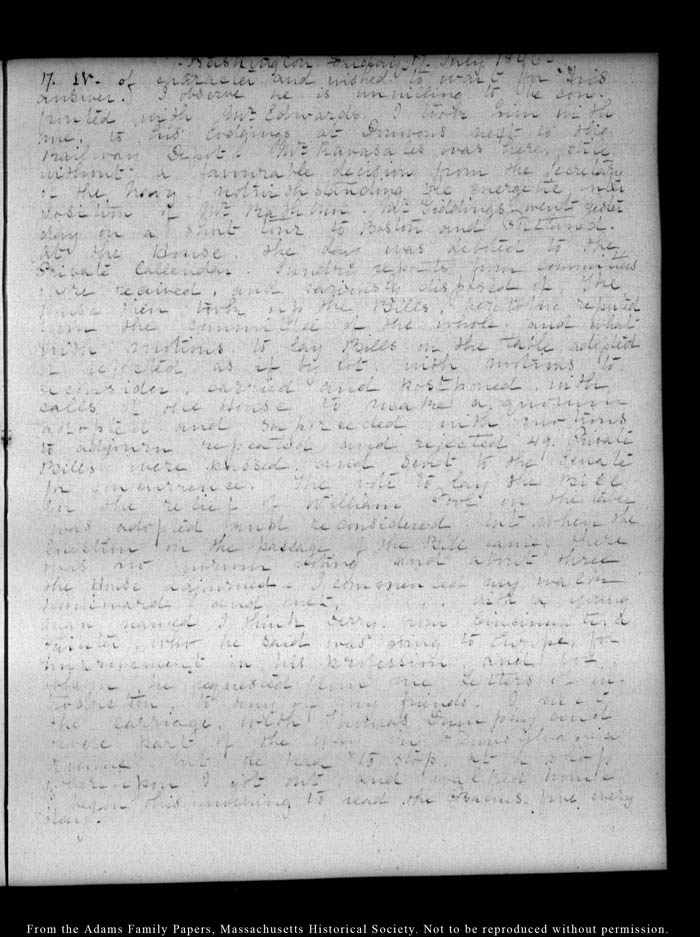 Washington Friday 17. July 1846.
17. IV. of character and wished to wait for his
answer. I observe he is unwilling to be con-
fronted with Mr Edwards. I took him with
me, to his lodgings at next to the
Railway Depot. Mr was here, still
without a favourable decision from the Secretary
of the Navy notwithstanding the energetic inter
position of Mr Rathbun. Mr Giddings went yester
day on a short tour to Boston and
At the House. the day was devoted to the
Private Callendar. Sundry reports from committees
were received, and variously disposed of. The
House then took up the Bills, heretofore reported
from the committee of the whole, and what
with motions to lay Bills on the table, adopted
or rejected as if by lot, with motions to
reconsider, carried and postponed, with
calls of the House to make a quorum
adopted and superseded with motions
to adjourn repeated and rejected 49. Private
Bills were passed, and sent to the Senate
for concurrence. The vote to lay the Bill
for the relief of William on the table
was adopted and reconsidered but when the
question on the passage of the Bill came, there
was no quorum voting and about three
the House adjourned. I commenced my walk
homeward and met with a young
man named I think from Cincinnati, a
Painter, who he said was going to Europe, for
improvement in his profession and for
whom he requested from me letters of in-
troduction, to any of my friends. I
the carriage, with Thomas and
rode part of the way in Pennsylvania
Avenue but he had to stop at a shop
whereupon I got out, and walked home
I began this morning to read the Psalms five every
day.
From the Adams Family Papers, Massachusetts Historical Society. Not to be reproduced without permission.